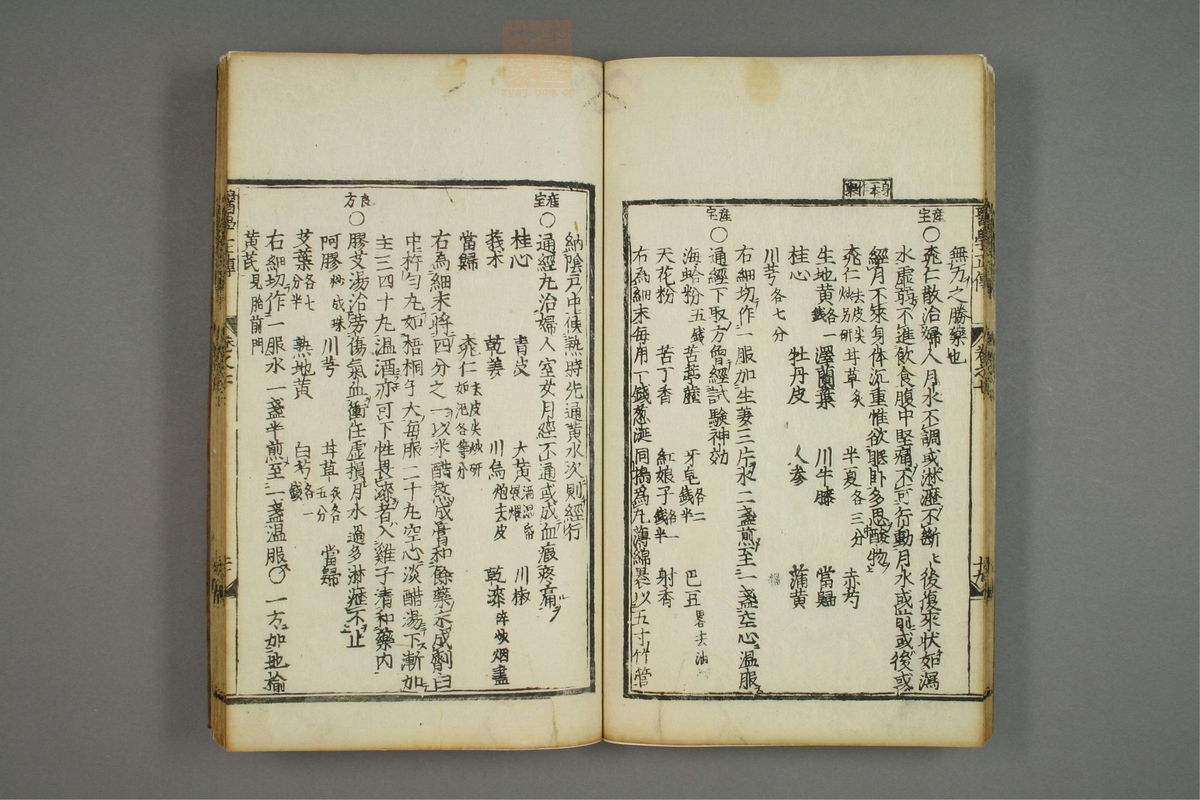 無力之勝藥也
産宝○桃仁散治婦人月水不調或淋瀝不斷斷後復來狀如瀉
水虛弱不進飲食腹中堅痛不可行動月水或前或後或
經月不來身体沉重惟欲眠卧多思酸物
桃仁去皮尖炒另研 甘草炙 半夏各三分 赤芍
生地黃各一錢 澤蘭葉 川牛膝 當歸
桂心 牡丹皮 人参 蒲黄
川芎各七分
右細切作一服加生姜三片水二盞煎至一盞空心温服
産宝○通經下取方曾經試驗神効
海蛤粉五錢 苦葶藶 牙皂各二錢半 巴豆畧去油
天花粉 苦丁香 紅娘子各一錢半 射香
右為細末每用一錢葱涎同搗為丸薄綿裹以五寸竹管
納陰戸中候熱時先通黃水次則經行
産宝○通經丸治婦人室女月經不通或成血瘕疼痛
桂心 青皮 大黃 川椒
莪朮 乾姜 川烏炮去皮 乾漆碎炒烟盡
當歸 桃仁去皮尖炒研如泥各等分
右為細末將四分之一以米醋熬成膏和餘藥末成劑臼
中杵勻丸如梧桐子大每服二十丸空心淡醋湯下漸加
至三四十九温酒亦可下性畏漆者入雞子清和藥内
良方○膠艾湯治勞傷氣血衝任虛損月水過多淋瀝不止
阿膠炒成珠 川芎 甘草炙各五分 當歸
艾葉各七分半 熟地黃 白芍各一錢
右細切作一服水一盞半煎至一盞温服○一方加地榆
黃芪見胎前門
醫學正傳